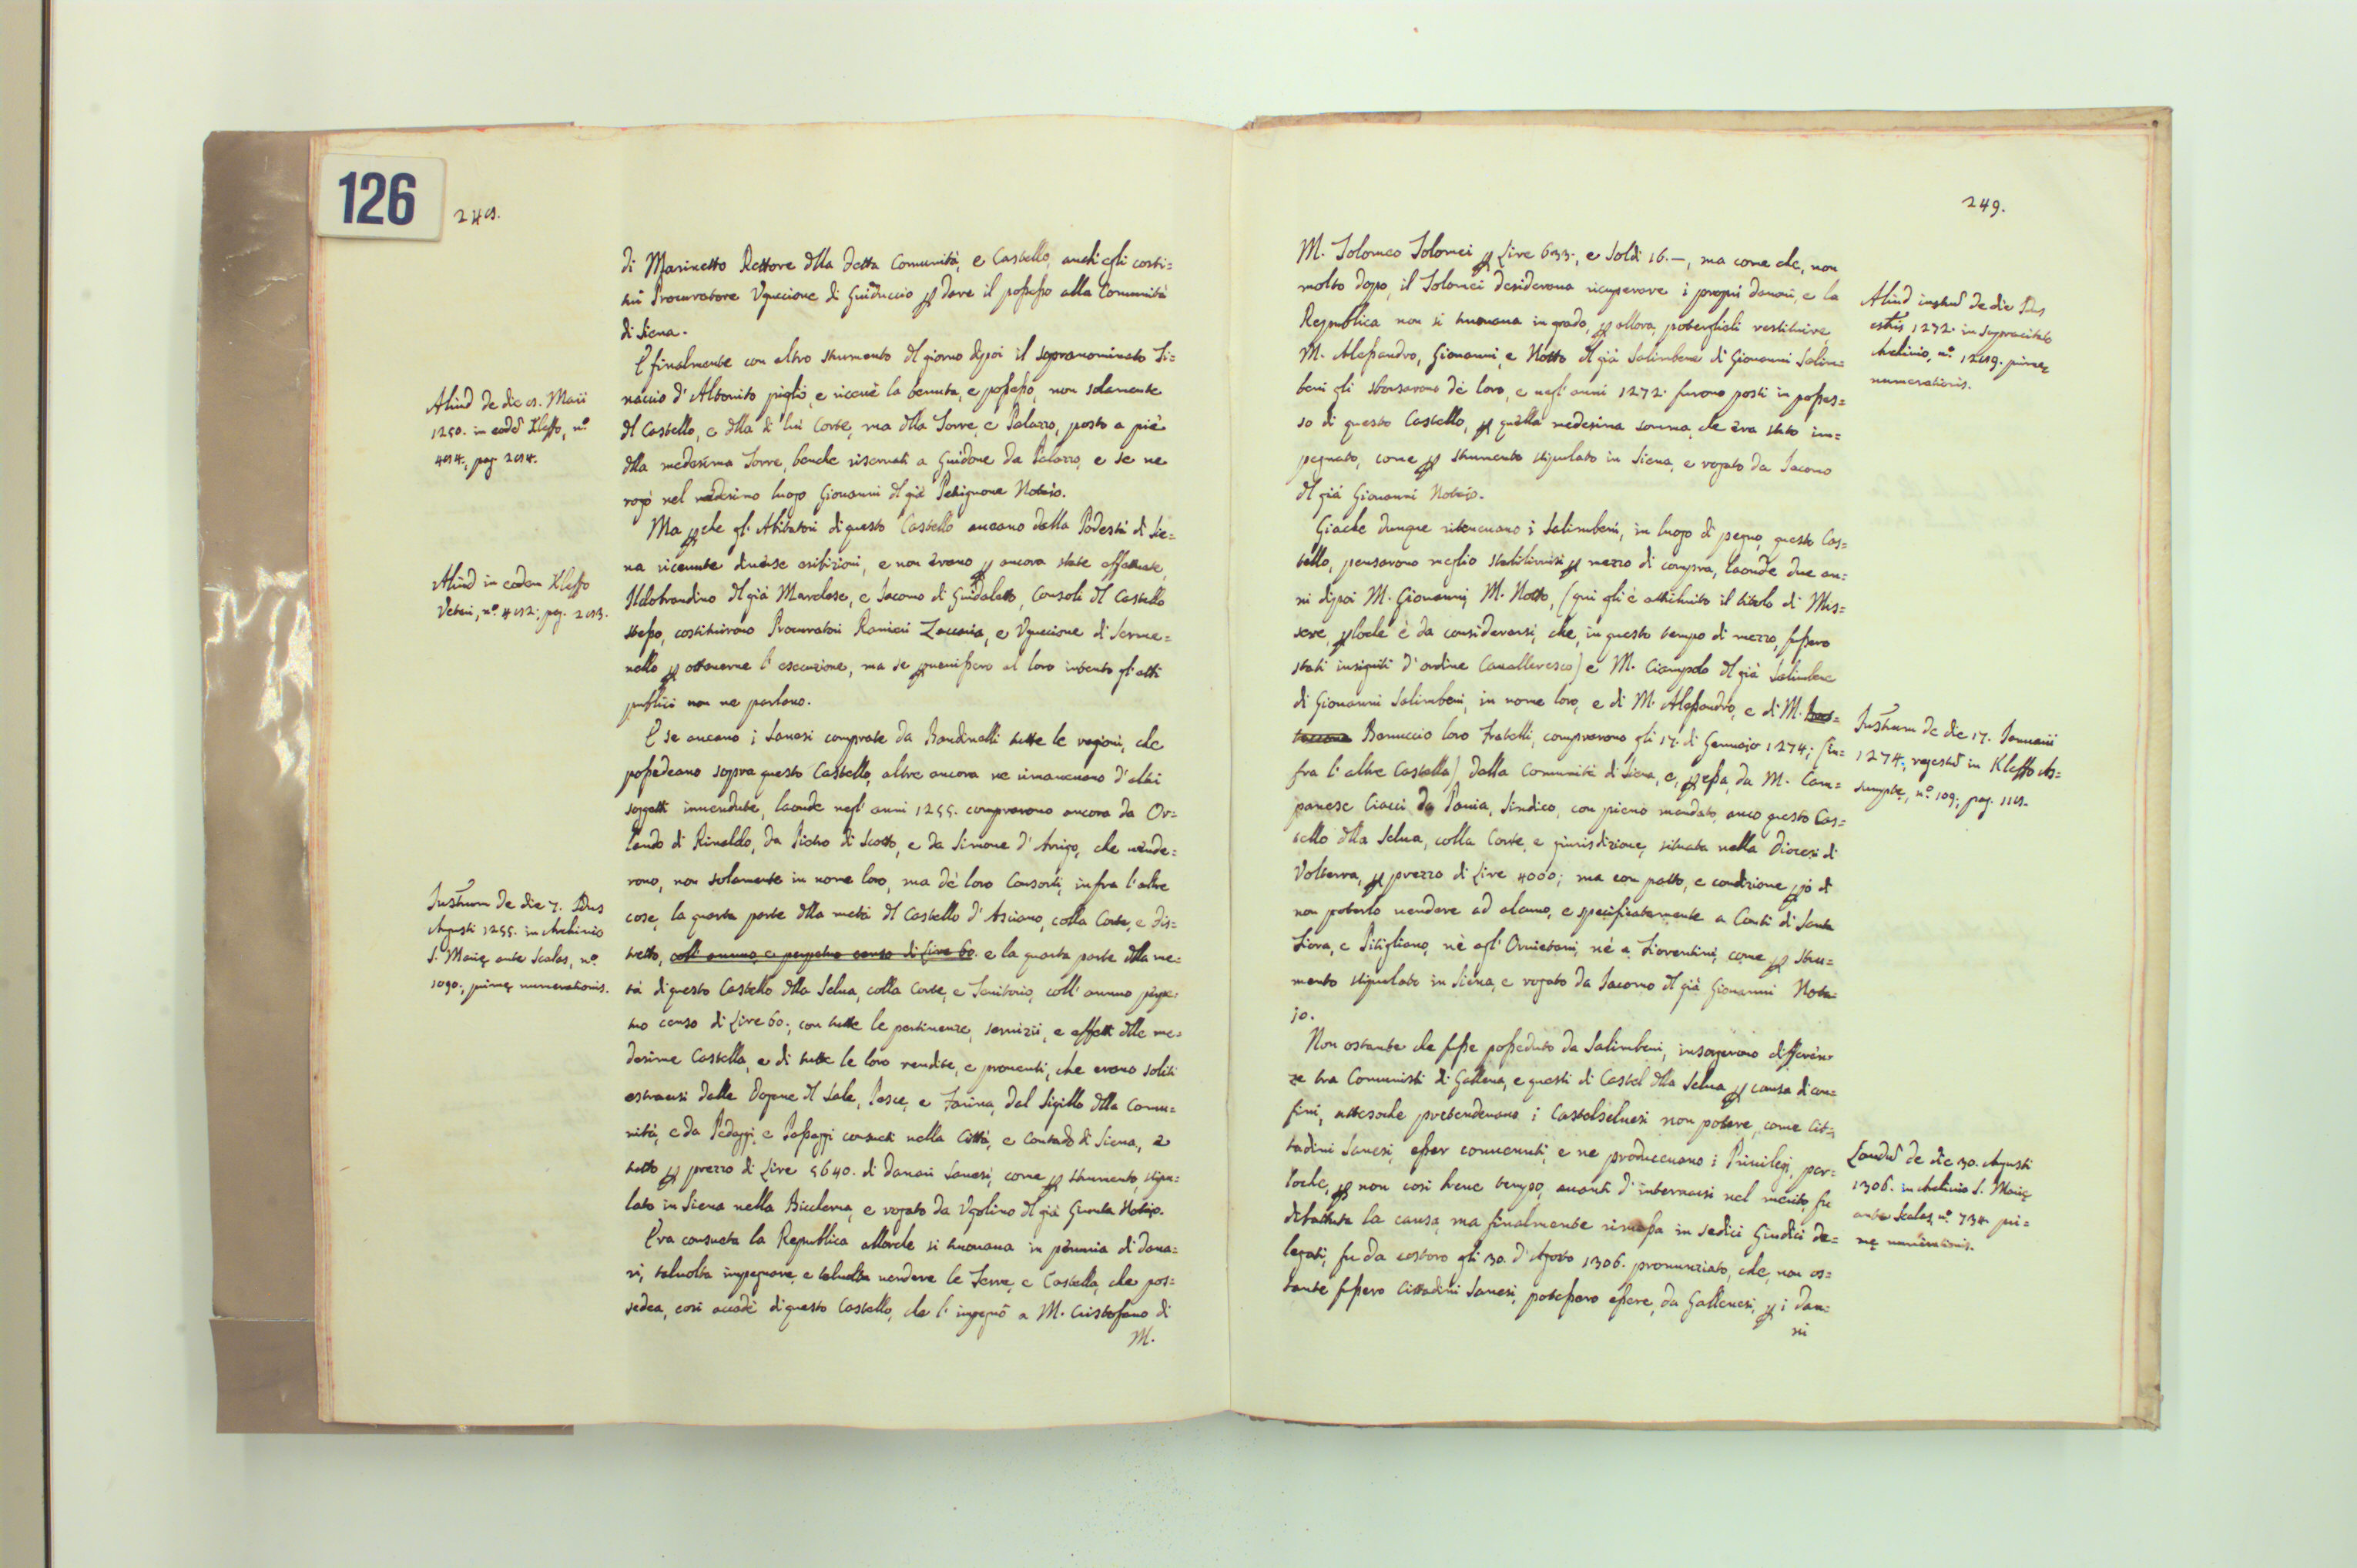 126
248.
di Marinetto Rettore dlla detta Comunità, e Castello, anch'egli costi=
tuì Procuratore Uguccione di Guiduccio p dare il possesso alla Comunità
di Siena.
E finalmente con altro strumento dl giorno dipoi il sopranominato Ti=
naccio d'Altonito pigliò, e riceuè la tenuta, e possesso, non solamente
dl Castello, e dlla di lui Corte, ma dlla Torre, e Palazzo, posto a piè
dlla medesima Torre, benche riseruati a Guidone da Palazzo, e se ne
rogò nel medesimo luogo Giouanni dl già Pitignone Notajo.
Aliud de die 8. Maii
1250. in eodē Kleffo, nº
484., pag. 284.
Ma pche gl'Abitatori di questo Castello aueano dalla Podestà di Sie=
na riceuute diuerse esibizioni, e non èrano p ancora state effettuate,
Ildobrandino dl già Maralese, e Iacomo di Guidaletto, Consoli dl Castello
stesso, costituirono Procuratori Ranieri Zaccaria, e Uguccione di Serme=
nello p ottenerne l'esecuzione, ma se puenissero al loro intento gl'atti
publici non ne parlano.
Aliud in eodem Kleffo
Veteri, nº 482; pag. 283.
E se aueano i Sanesi comprate da Bandinelli tutte le ragioni, che
possedeano sopra questo Castello, altre ancora ne rimaneuano d'altri
soggetti inuendute, laonde negl'anni 1255. comprarono ancora da Or=
lando di Rinaldo, da Pietro di Scotto, e da Simone d'Arrigo, che uende=
rono, non solamente in nome loro, ma de' loro Consorti, infra l'altre
cose, la quarta parte dlla metà dl Castello d'Asciano, colla Corte, e Dis=
tretto, coll'annuo, e perpetuo censo di Lire 60. e la quarta parte dlla me=
tà di questo Castello dlla Selua, colla Corte, e Territorio, coll'annuo ppe=
tuo censo di Lire 60.; con tutte le pertinenze, seruizii, e effetti dlle me=
desime Castella, e di tutte le loro rendite, e prouenti, che erano soliti
estraersi dalle Dogane dl Sale, Pesce, e Farina, dal Sigillo dlla Comu=
nità, e da Pedaggi, e Passaggi consueti nella Città, e Contado di Siena, e
tutto p prezzo di Lire 5640. di danari Sanesi, come p strumento, stipu=
lato in Siena nella Biccherna, e rogato da Ugolino dl già Giunta Notajo.
Instrum de die 7. Idus
Agusti 1255. in Archiuio
S. Marię ante Scalas, nº
1090., primę numerationis.
Era consueta la Republica allorche si trouaua in penuria di dana=
ri, taluolta impegnare, e taluolta uendere le Terre, e Castella, che pos=
sedea, così accadè di questo Castello, che l'impegnò a M. Cristofano di
M.
249.
M. Tolomeo Tolomei p Lire 633., e Soldi 16.—, ma come che, non
molto dopo, il Tolomei desideraua ricuperare i proprii danari, e la
Republica non si trouaua in grado, p allora, poterglieli restituire,
M. Alessandro, Giouanni, e Notto dl già Salimbene di Giouanni Salim=
beni gli sborsarono de' loro, e negl'anni 1272. furono posti in posses=
so di questo Castello, p quella medesima somma, che èra stato im=
pegnato, come p strumento stipulato in Siena, e rogato da Iacomo
dl già Giouanni Notajo.
Aliud instrū de die Idus
1272. in sopracitato
Archiuio, nº 1289. primę
numerationis.
Giache dunque riteneuano i Salimbeni, in luogo di pegno, questo Cas=
tello, pensarono meglio stabiliruisi p mezzo di compra, laonde due an=
ni dipoi M. Giouanni, M. Notto, (qui gli è attribuito il titolo di Mes=
sere, ploche è da considerarsi, che, in questo tempo di mezzo, fussero
stati insigniti d'ordine Caualleresco) e M. Ciampolo dl già Salimbene
di Giouanni Salimbeni, in nome loro, e di M. Alessandro, e di M.
Benuccio loro Fratelli, comprarono gli 17. di Gennajo 1274; (in=
fra l'altre Castella) dalla Comunità di Siena, e, p essa, da M. Cam=
panese Ciacci da Pauia, Sindico, con pieno mandato, anco questo Cas=
tello dlla Selua, colla Corte, e giurisdizione, situata nella Diocesi di
Volterra, p prezzo di Lire 4000; ma con patto, e condizione pò di
non poterlo uendere ad alcuno, e specificatamente a Conti di Santa
Fiora, e Pitigliano, nè agl'Oruietani, nè a Fiorentini, come p stru=
mento stipulato in Siena, e rogato da Iacomo dl già Giouanni Nota=
jo.
Instrum de die 17. Ianuarii
1274., registū in Kleffo As=
sumptę, nº 109; pag. 118.
Non ostante che fusse posseduto da Salimbeni, insorgerono differen=
ze tra Comunisti di Gallena, e questi di Castel dlla Selua p causa di con=
fini, attesoche pretendeuano i Castelseluesi non potere, come Cit=
tadini Sanesi, esser conuenuti, e ne produceuano i Priuilegi, per=
loche, p non così breue tempo, auanti d'internarsi nel merito, fu
dibattuta la causa, ma finalmente rimessa in sedici Giudici de=
legati, fu da costoro gli 30. d'Agosto 1306. pronunziato, che, non os=
tante fussero Cittadini Sanesi, potessero essere, da Gallenesi, p i dan=
ni
Laudū de die 30. Agusti
1306. in Archiuio S. Marię
ante Scalas, nº 734. pri=
mę numerationis.